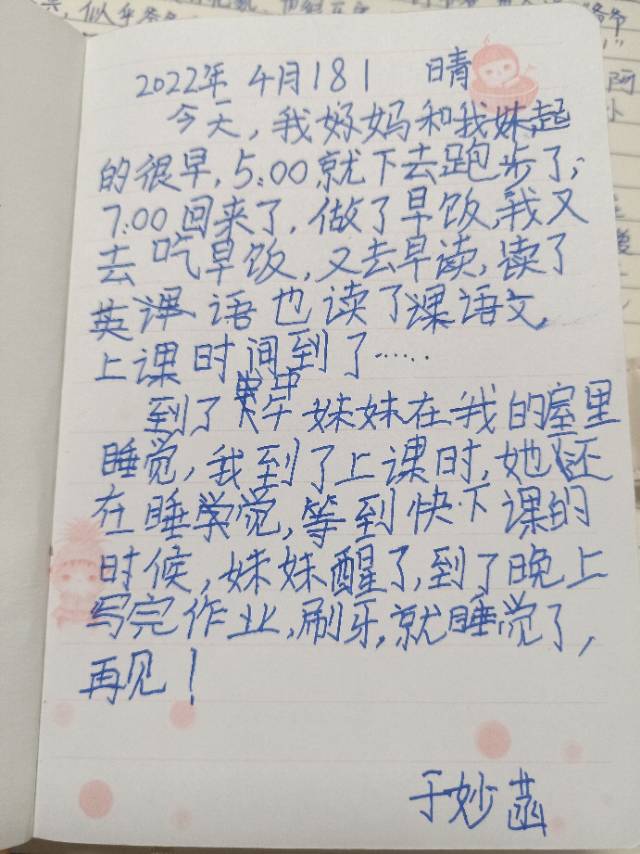 2022年 4月181 晴
今天,我妈妈和我妹起
的很早,5:00就下去跑步了;
7:00回来了,做了早饭,我又
去吃早饭,又去早读,读了
英课语也读了课语文,
上课时间到了……
到了中午妹妹在我的室里
睡觉,我到了上课时,她还
在睡学觉,等到快下课的
时候,妹妹醒了,到了晚上
写完作业,刷牙,就睡觉了,
再见!
于妙菡